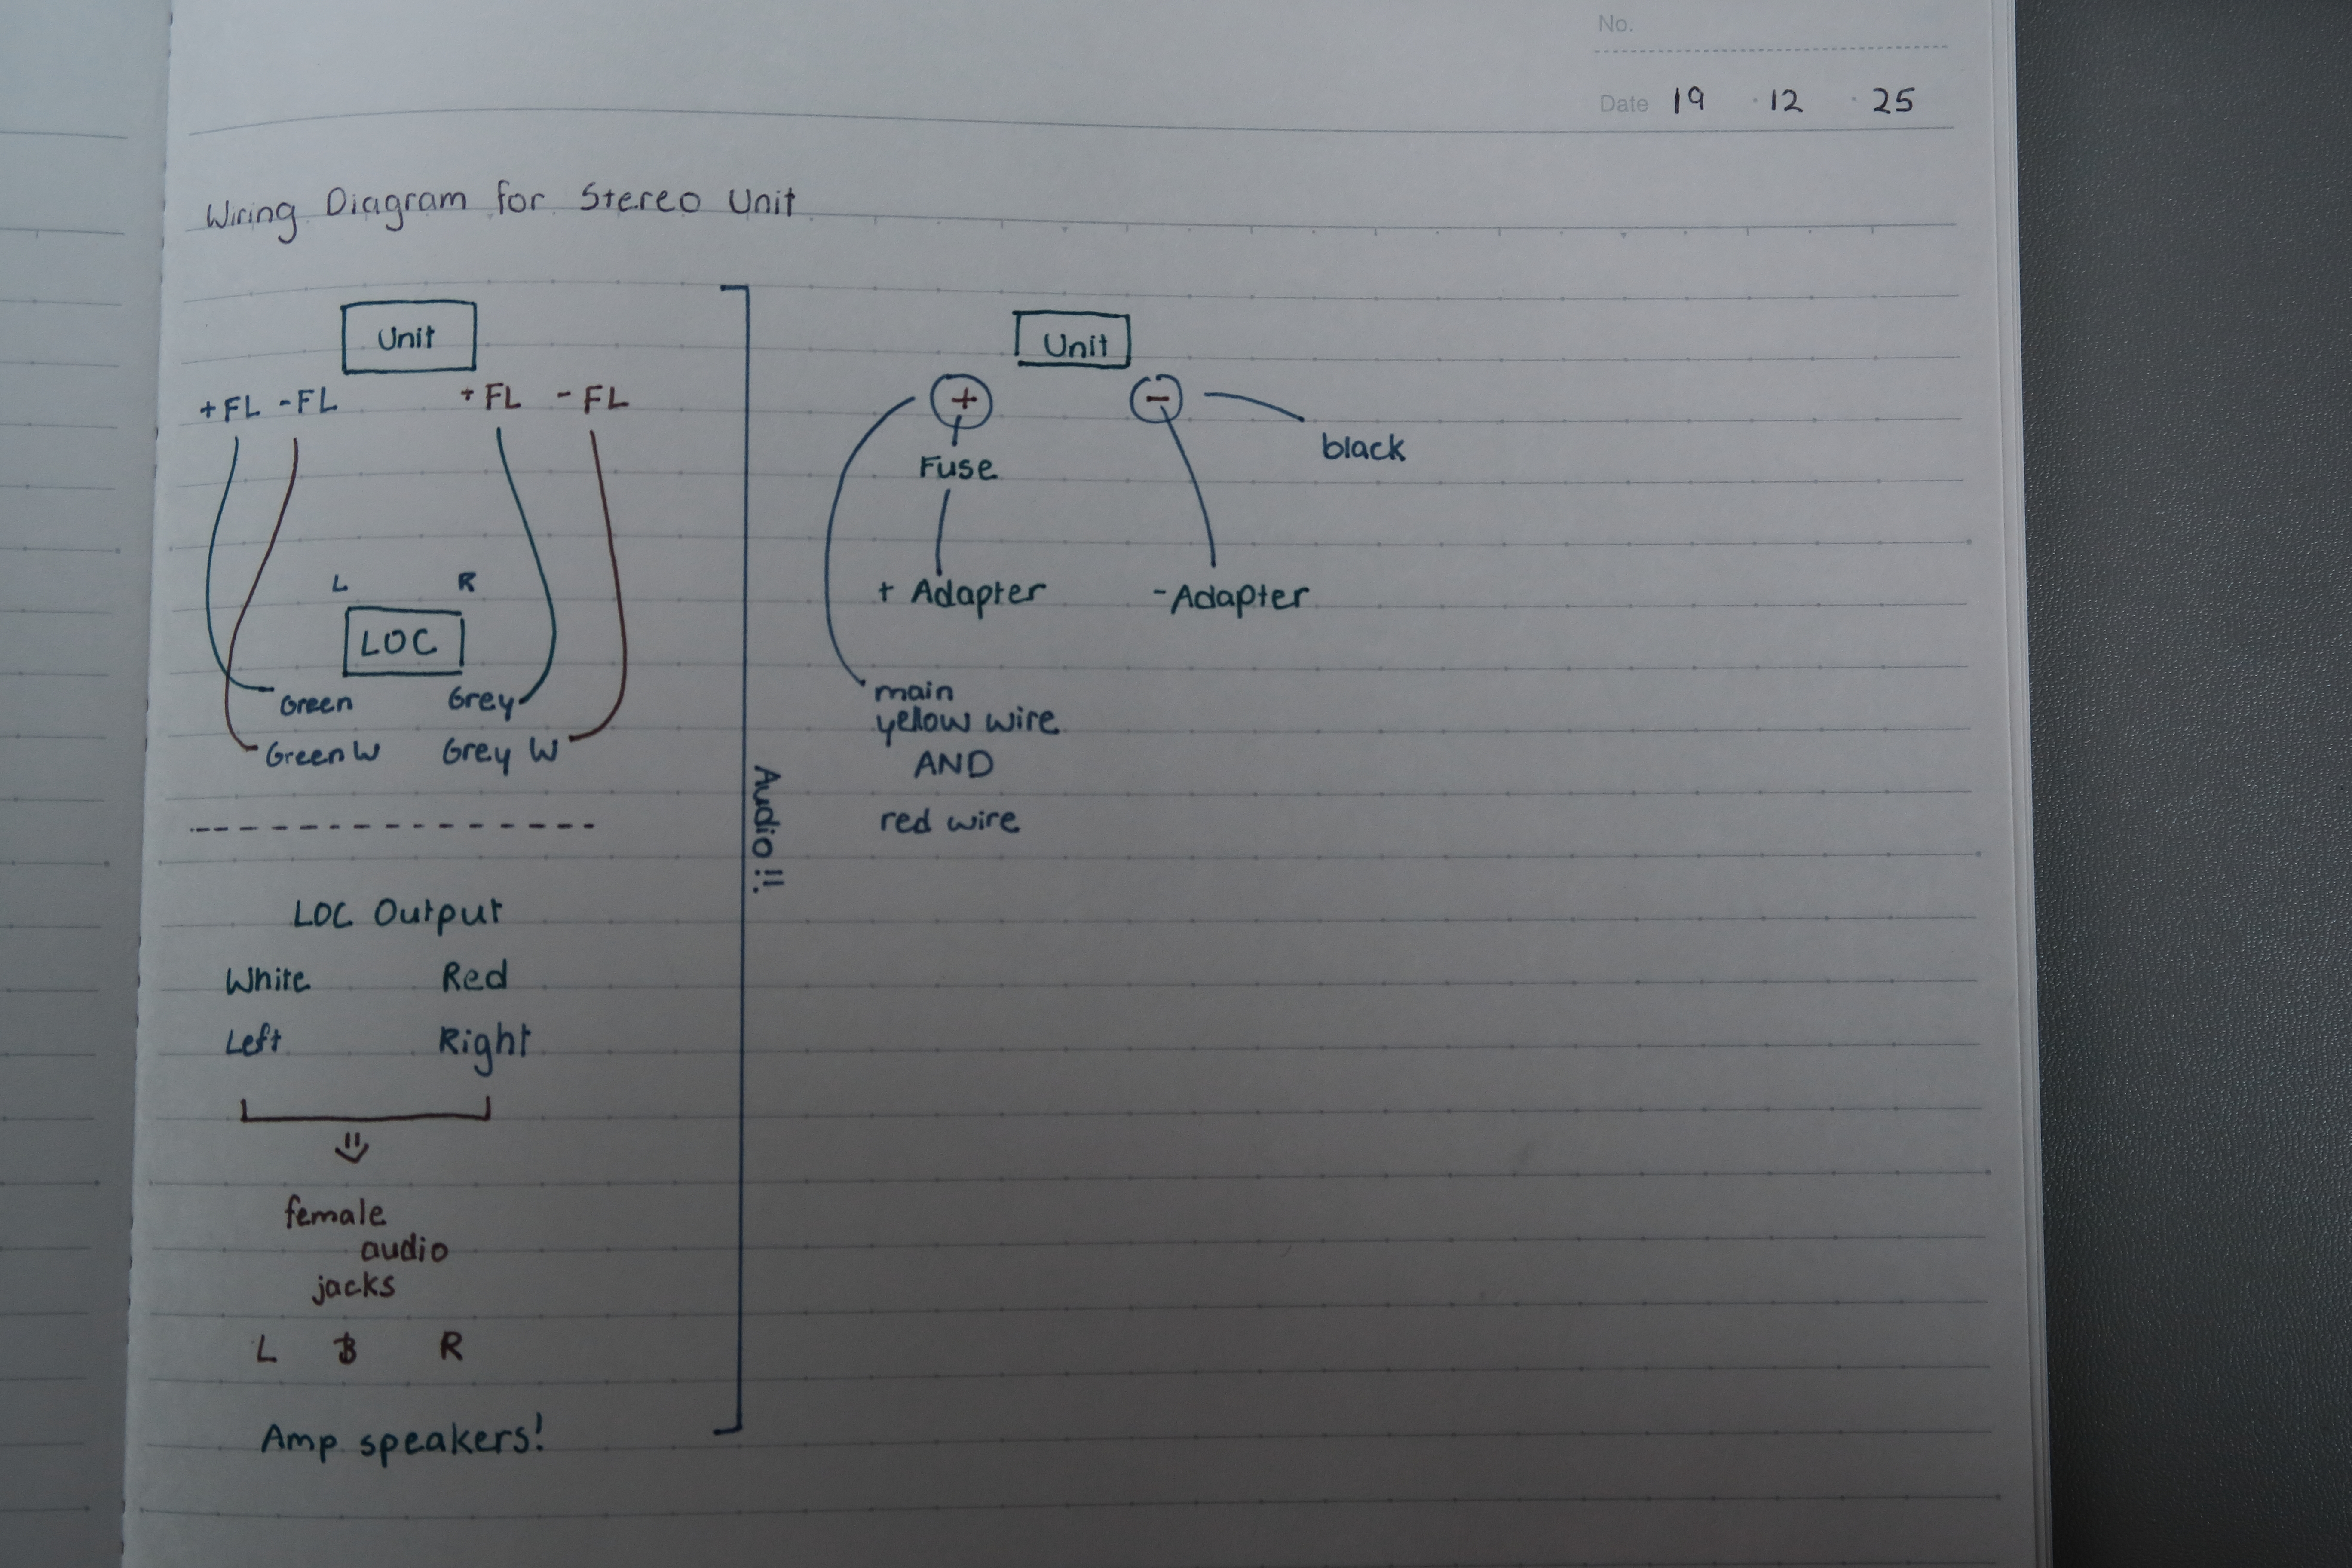 No.
Date 19 · 12 · 25
Wiring Diagram for Stereo Unit
Unit
+FL -FL +FL -FL
L R
LOC
Green Grey
Green W Grey W
LOC Output
White Red
Left Right
female
audio
jacks
L R
Amp speakers!
Audio!!
Unit
+ -
black
Fuse
+ Adapter -Adapter
main
yellow wire
AND
red wire